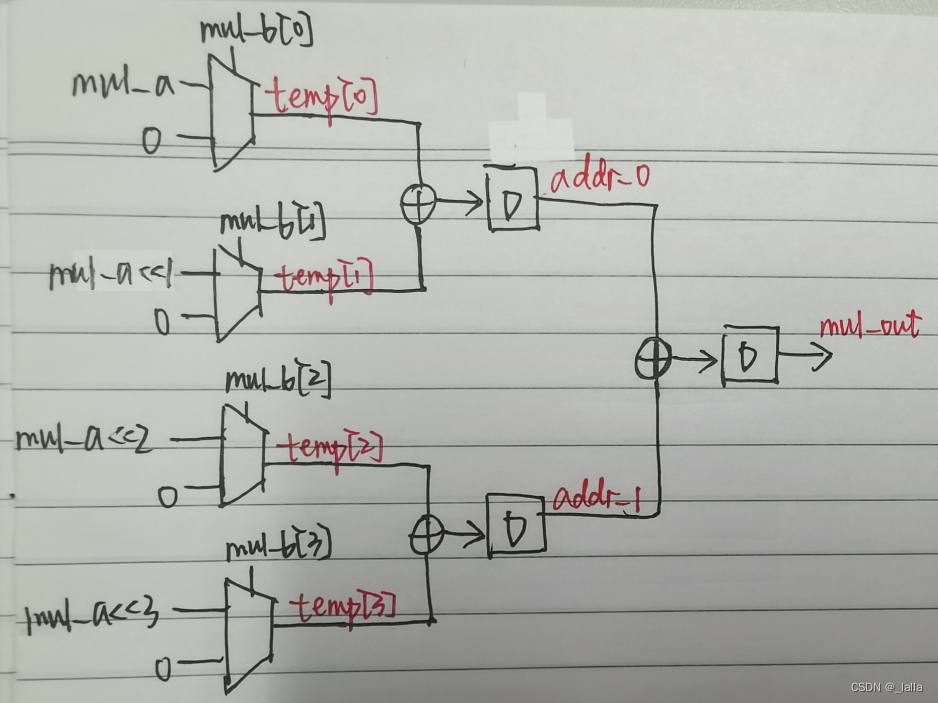 mul_b[0]
mul_a
temp[0]
0
addr_0
D
mul_b[1]
mul_a<<1
temp[1]
0
mul_out
D
mul_b[2]
mul_a<<2
temp[2]
0
addr_1
D
mul_b[3]
mul_a<<3
temp[3]
0
CSDN @_lalla